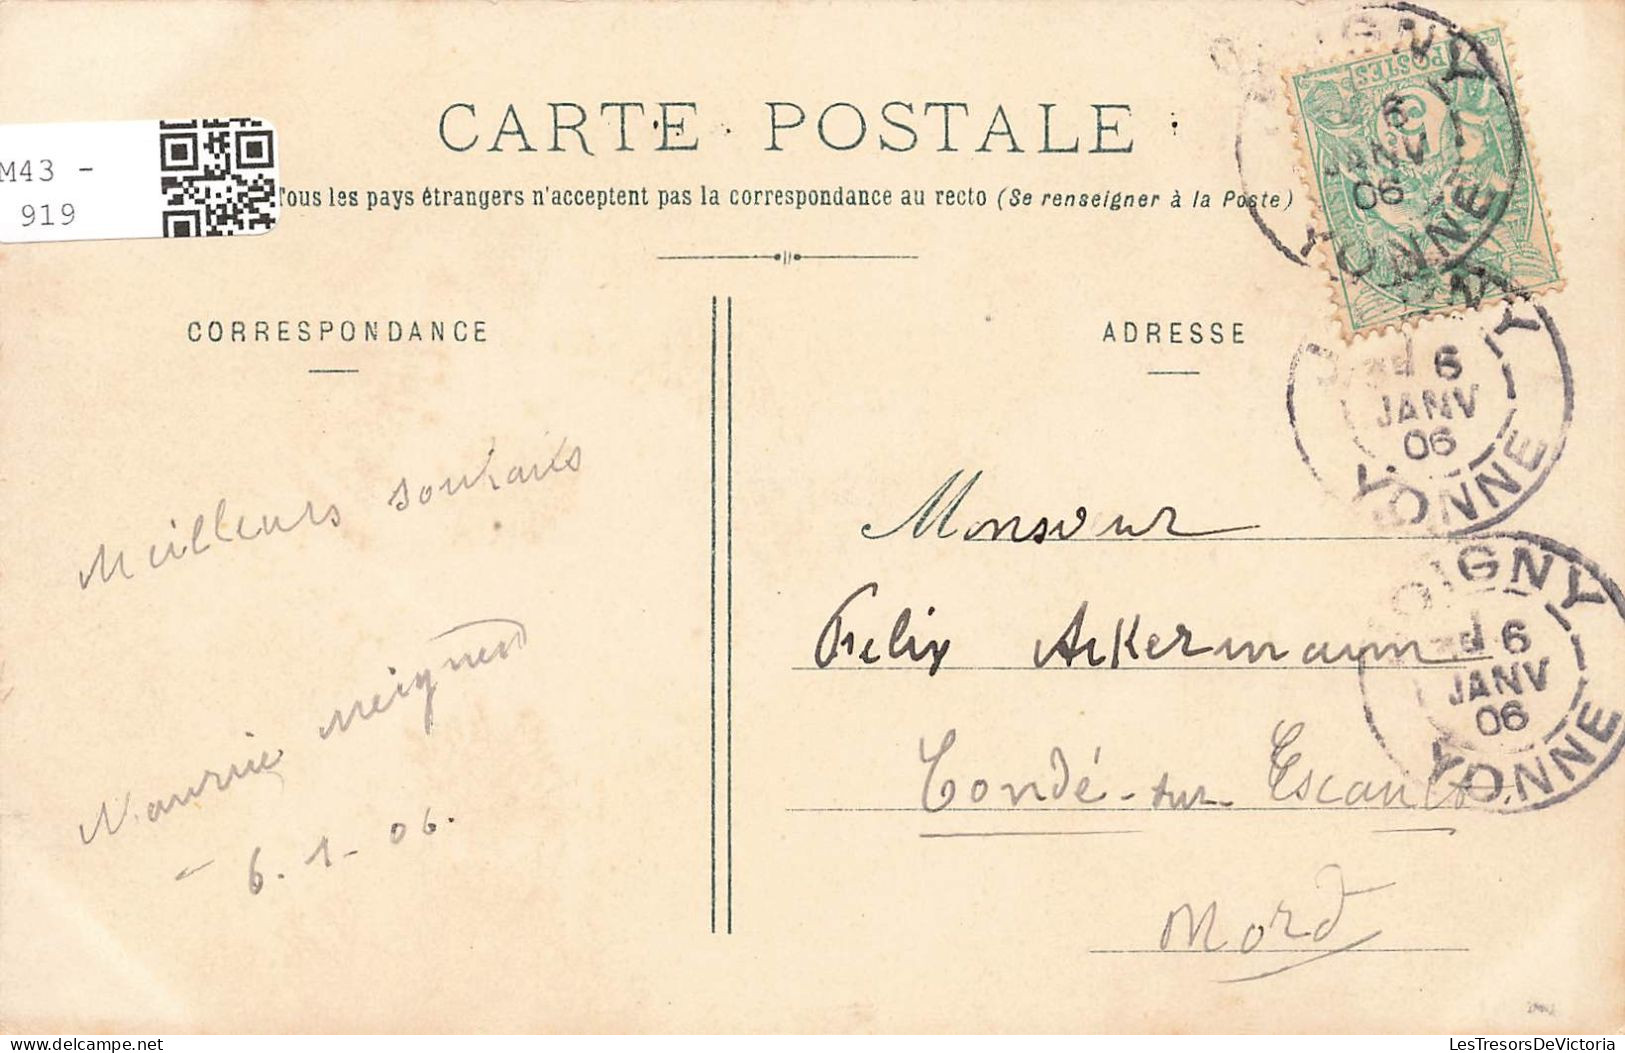 CARTE POSTALE
M43 -
919
Tous les pays étrangers n'acceptent pas la correspondance au recto (Se renseigner à la Poste)
CORRESPONDANCE
ADRESSE
POSTES
5
6
JANV
06
YONNE
6
JANV
06
YONNE
OIGNY
6
JANV
06
YONNE
Meilleurs souhaits
Maurice
6.1-06.
Monsieur
Felix Ackermann
Condé-sur Escaut
Nord
LesTresorsDeVictoria